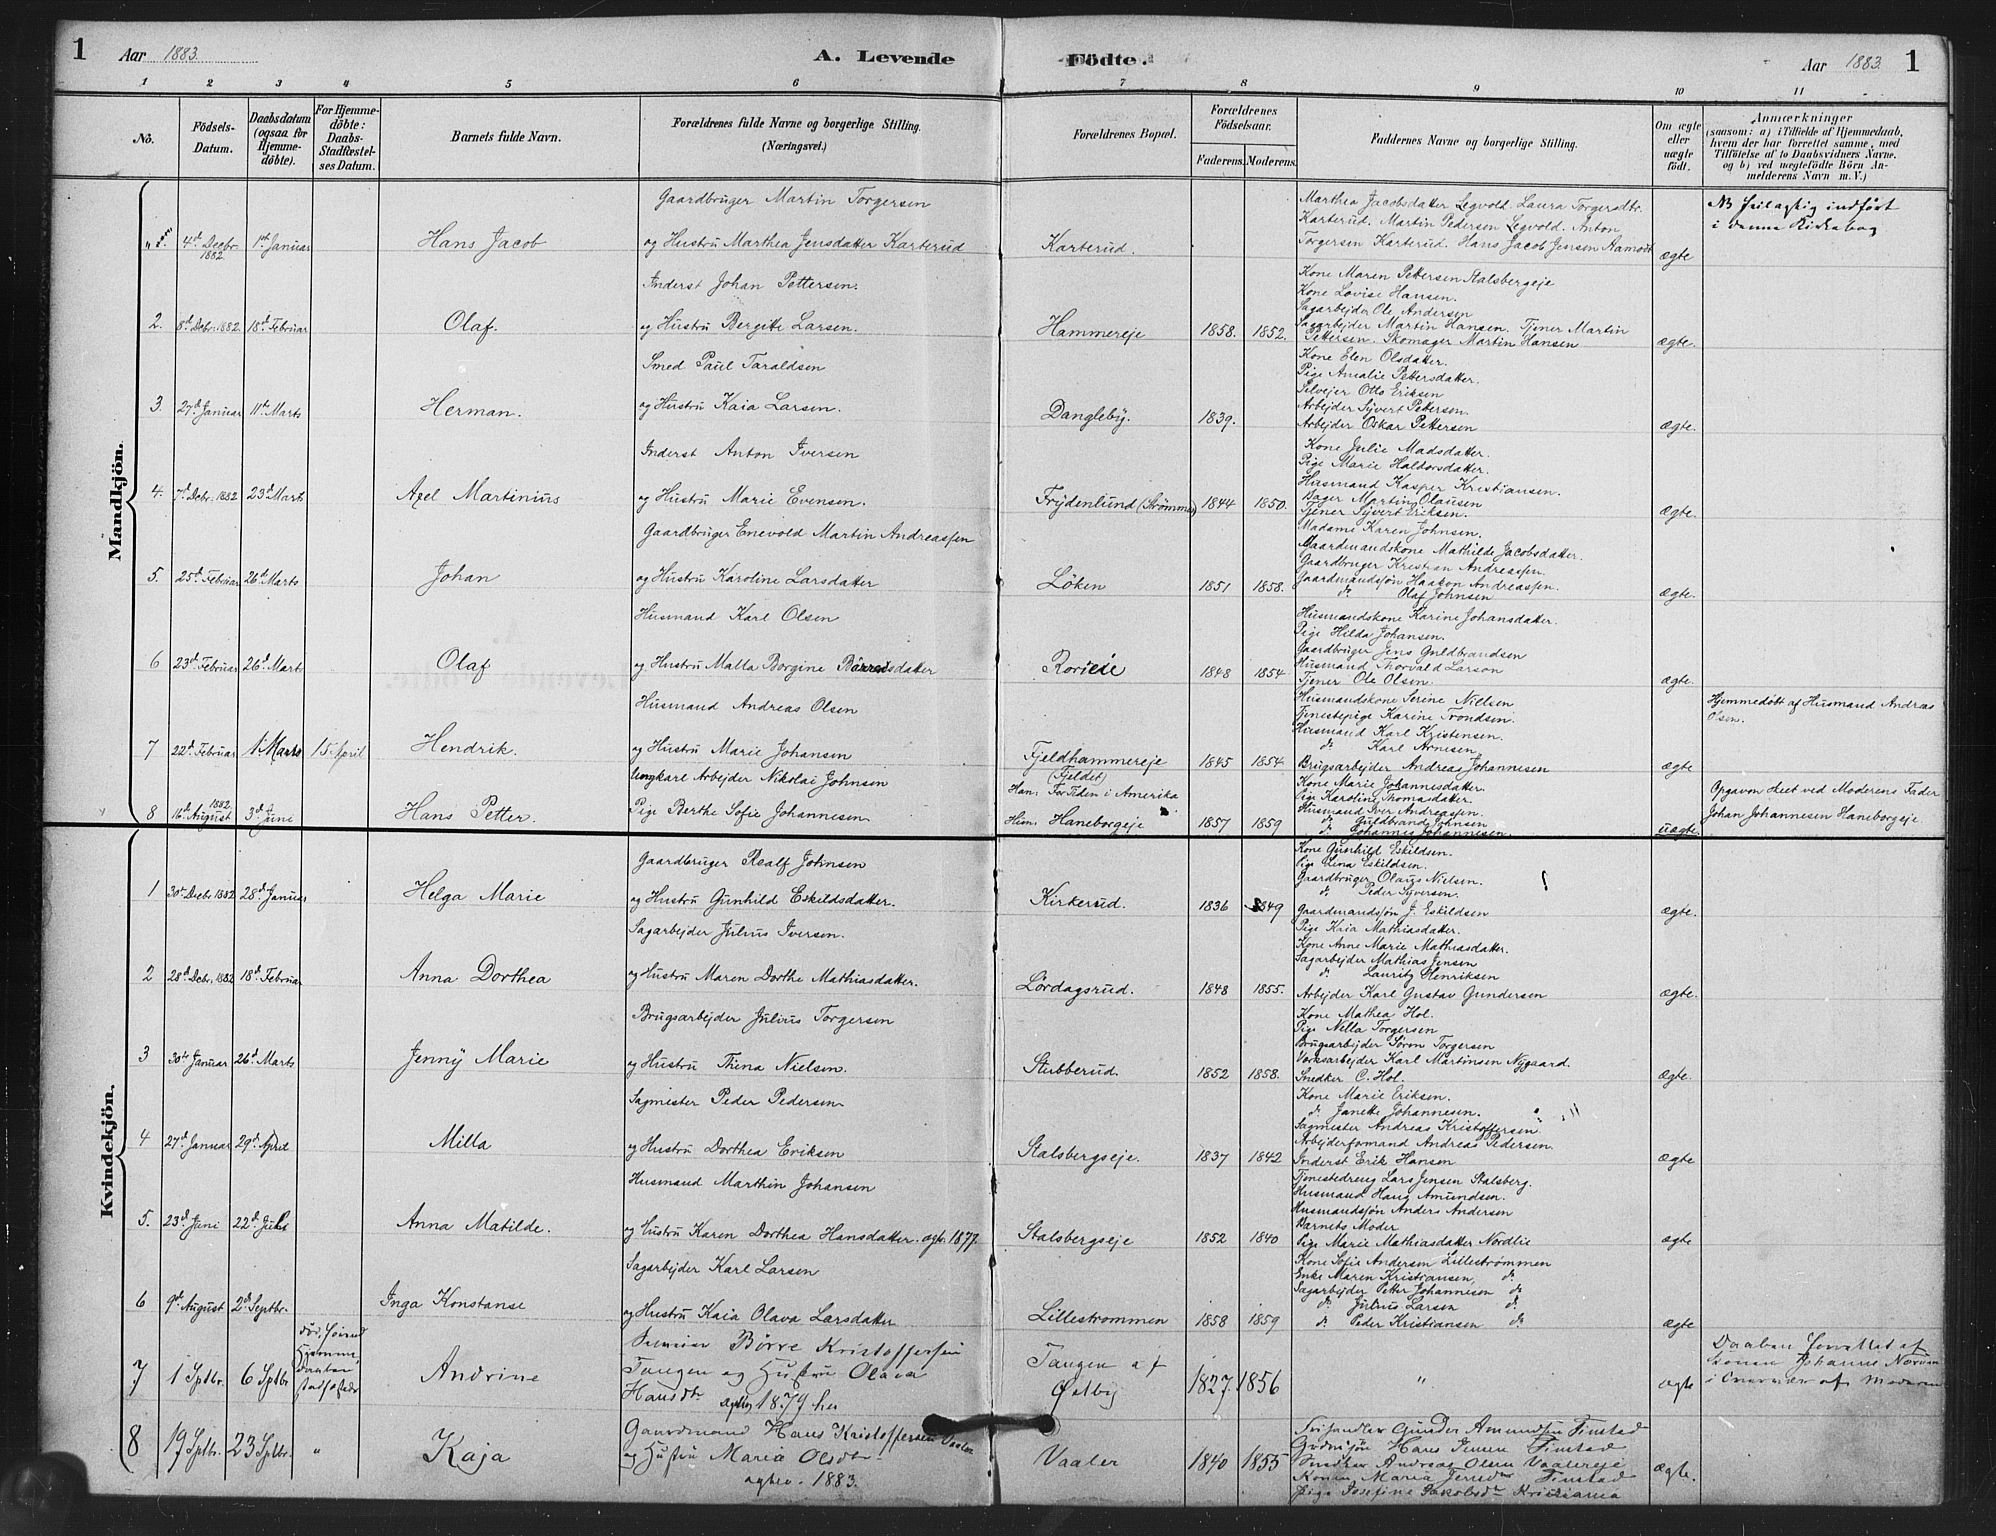 1 Aar 1883. A. Levende Födte. Aar 1883. 1
1 2 3 4 5 6 7 8 9 10 11
No.
Födsels-Datum.
Daabsdatum (ogsaa for Hjemmedöbte).
For Hjemmedöbte: Daabs-Stadfæstelses Datum.
Barnets fulde Navn.
Forældrenes fulde Navne og borgerlige Stilling. (Næringsvei.)
Forældrenes Bopæl.
Forældrenes Födselsaar.
Faderens. Moderens.
Faddernes Navne og borgerlige Stilling.
Om ægte eller uægte födt.
Anmærkninger
(saasom: a) i Tilfælde af Hjemmedaab, hvem der har forrettet samme, med Tilföielse af to Daabsvidners Navne. og b) ved uægtefödte Börn Anmelderens Navn m.V.)
Mandkjön.
Gaardbruger Martin Torgersen
4d Decbr. 1882 1st Januar Hans Jacob og Hustru Marthea Jensdatter Karterud Karterud. ægte
Marthea Jacobsdatter Legvold. Laura Torgersdtr.
Karterud. Martin Pedersen Legvold. Anton
Torgersen Karterud. Hans Jacob Jensen Aamodt
NB feilagtig indført
i denne Kirkebog
Inderst Johan Pettersen.
2. 8d Debr. 1882. 18d Februar Olaf. og Hustru Bergitte Larsen. Hammereje 1858. 1852. ægte.
Kone Maren Pettersen Stalsbergeje
Kone Lovise Hansen.
Sagarbejder Ole Andersen
Sagarbejder Martin Hansen. Tjener Martin
Pettersen. Skomager Martin Hansen
Smed Paul Taraldsen
3. 27d Januar 11te Marts Herman. og Hustru Kaia Larsen. Danglebÿ. 1839. ægte.
Kone Elen Olsdatter.
Pige Amalie Pettersdatter.
Selvejer Otto Eriksen
Arbejder Sÿvert Pettersen.
Arbejder Oskar Pettersen
Inderst Anton Iversen
4. 7d Debr. 1882 23d Marts Axel Martinius og Hustru Marie Evensen. Frÿdenlund (Strømmen) 1844 1850. ægte.
Kone Julie Madsdatter.
Pige Marie Halvorsdatter.
Husmand Kasper Kristiansen.
Bager Martin Olausen
Tjener Sÿvert Eriksen.
Gaardbruger Enevold Martin Andreassen
5. 25d Februar 26d Marts Johan og Hustru Karoline Larsdatter Löken 1851 1858. ægte.
Madame Karen Johnsen.
Gaardmandskone Mathilde Jacobsdatter.
Gaardbruger Kristian Andreassen.
Gaardmandssjøn Haakon Andreassen.
do Olaf Johnsen
Husmand Karl Olsen
6 23d Februar 26d Marts Olaf og Hustru Malla Borgine Börresdatter 1848 1854 ægte.
Husmandskone Karine Johansdatter.
Pige Hilda Johansen.
Gaardbruger Jens Guldbrandsen
Husmand Thorvald Larson
Tjener Ole Olsen.
Husmand Andreas Olsen
7 22d Februar 1 Marts 15 April Hendrik. og Hustru Marie Johansen Fjeldhammereje (Fjeldet) 1845 1854 ægte
Husmandskone Serine Nielsen
Tjenestepige Karine Trondsen.
Husmand Karl Kristensen.
do Karl Arnesen
Brugsarbejder Andreas Johannesen
Hjemmedöbt af Husmand Andreas
Olsen.
Ungkarl Arbejder Nikolai Johnsen
8 16d August 1882 3d Juni Hans Petter. Pige Berthe Sofie Johannesen Han: For Tiden i Amerika
Hun: Haneborgeje 1857 1859 uægte
Kone Marie Johannesdatter.
Pige Karoline Thomasdatter.
Husmand Iver Andreassen.
do Guldbrand Johnsen
do Johannes Johannesen.
Opgaven skeet ved Moderens Fader
Johan Johannesen Haneborgeje.
Kvindekjön.
Gaardbruger Realf Johnsen
1 30te Decbr 1882 28d Januar Helga Marie og Hustru Gunhild Eskildsdatter. Kirkerud. 1836 1849 ægte.
Kone Gunhild Eskildsen.
Pige Lina Eskildsen.
Gaardbruger Olaus Nielsen.
do Peder Syversen.
Gaardmandssjøn J. Eskildsen
Sagarbejder Julius Iversen.
2 28d Debr. 1882 18d Februar Anna Dorthea og Hustru Maren Dorthe Mathiasdatter. Lördagsrud. 1848 1855. ægte.
Pige Kaia Mathiasdatter.
Kone Anne Marie Mathiasdatter.
Sagarbejder Mathias Jensen
do Lauritz Henriksen
Arbejder Karl Gustav Gundersen
Brugsarbejder Julius Torgersen
3 30te Januar 26d Marts Jennÿ Marie og Hustru Thina Nielsen. Stubberud. 1852 1858. ægte.
Kone Mathea Hol.
Pige Nilla Torgersen
Brugsarbejder Sören Torgersen
Værksarbejder Karl Martinsen Nygaard.
Snedker C. Hol.
Sagmester Peder Pedersen
4 27d Januar 29d April Milla og Hustru Dorthea Eriksen Stalsbergseje. 1837 1842 ægte
Kone Marie Eriksen.
do Janette Johannesen.
Sagmester Andreas Kristoffersen
Arbejderformand Andreas Pedersen.
Inderst Erik Hansen
Husmand Marthin Johansen
5. 23d Juni 22d Juli Anna Matilde. og Hustru Karen Dorthea Hansdatter. ægtv. 1877. Stalsbergseje 1852 1840 ægte
Tjenestedreng Lars Jensen Stalsberg.
Husmand Hans Amundsen.
Husmandssjön Anders Andersen
Barnets Moder
Pige Marie Mathiasdatter Nordlie
Sagarbejder Karl Larsen
6 9d August 2d Septbr. Inga Konstanse og Hustru Kaia Olava Larsdatter Lillestrømmen 1858 1859 ægte
Kone Sofie Andersen Lillestrømmen
Enke Maren Kristiansen, do
Sagarbejder Petter Johannesen do
do Julius Larsen do
do Peder Kristiansen do
Børre Kristoffersen
7 1 Sptbr. 6 Sptbr. Andrine Tangen og Hustru Olava
Hansdtr ægtev 1874 her Tangen af
Østby 1827. 1856 " ægte
Gaardmand Hans Kristoffersen Vaaler
8 19 Sptbr. 23 Sptbr. " Kaja og Hustru Maria Olsdtr
ægtev. 1883. Vaaler 1840 1855 ægte.
Gunder Amundsen Finstad
Hans Jensen Finstad
Andreas Olsen Vaalereje
Konen Maria Jensdtr Finstad
Pige Josefine Jakobsdtr Kristiania